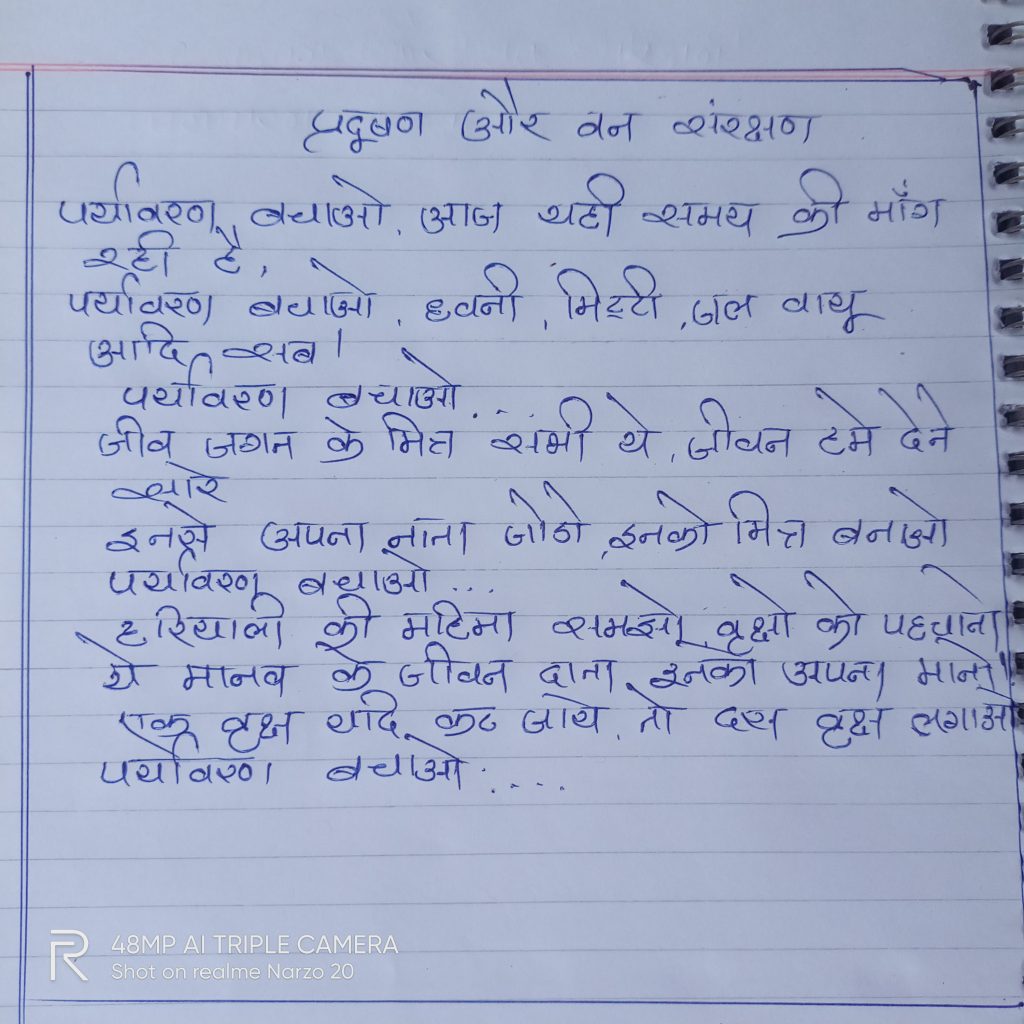 प्रदूषण और वन संरक्षण
पर्यावरण बचाओ, आज यही समय की माँग
रही है,
पर्यावरण बचाओ, ध्वनी, मिट्टी, जल वायू
आदि सब।
पर्यावरण बचाओ...
जीव जगन के मित्र सभी ये, जीवन हमे देने
सारे
इनसे अपना नाता जोडो, इनको मित्र बनाओ
पर्यावरण बचाओ...
हरियाली की महिमा समझो, वृक्षो को पहचानो
ये मानव के जीवन दाता, इनको अपना मानो।
एक वृक्ष यदि कट जाये, तो दस वृक्ष लगाओ
पर्यावरण बचाओ....
48MP AI TRIPLE CAMERA
Shot on realme Narzo 20